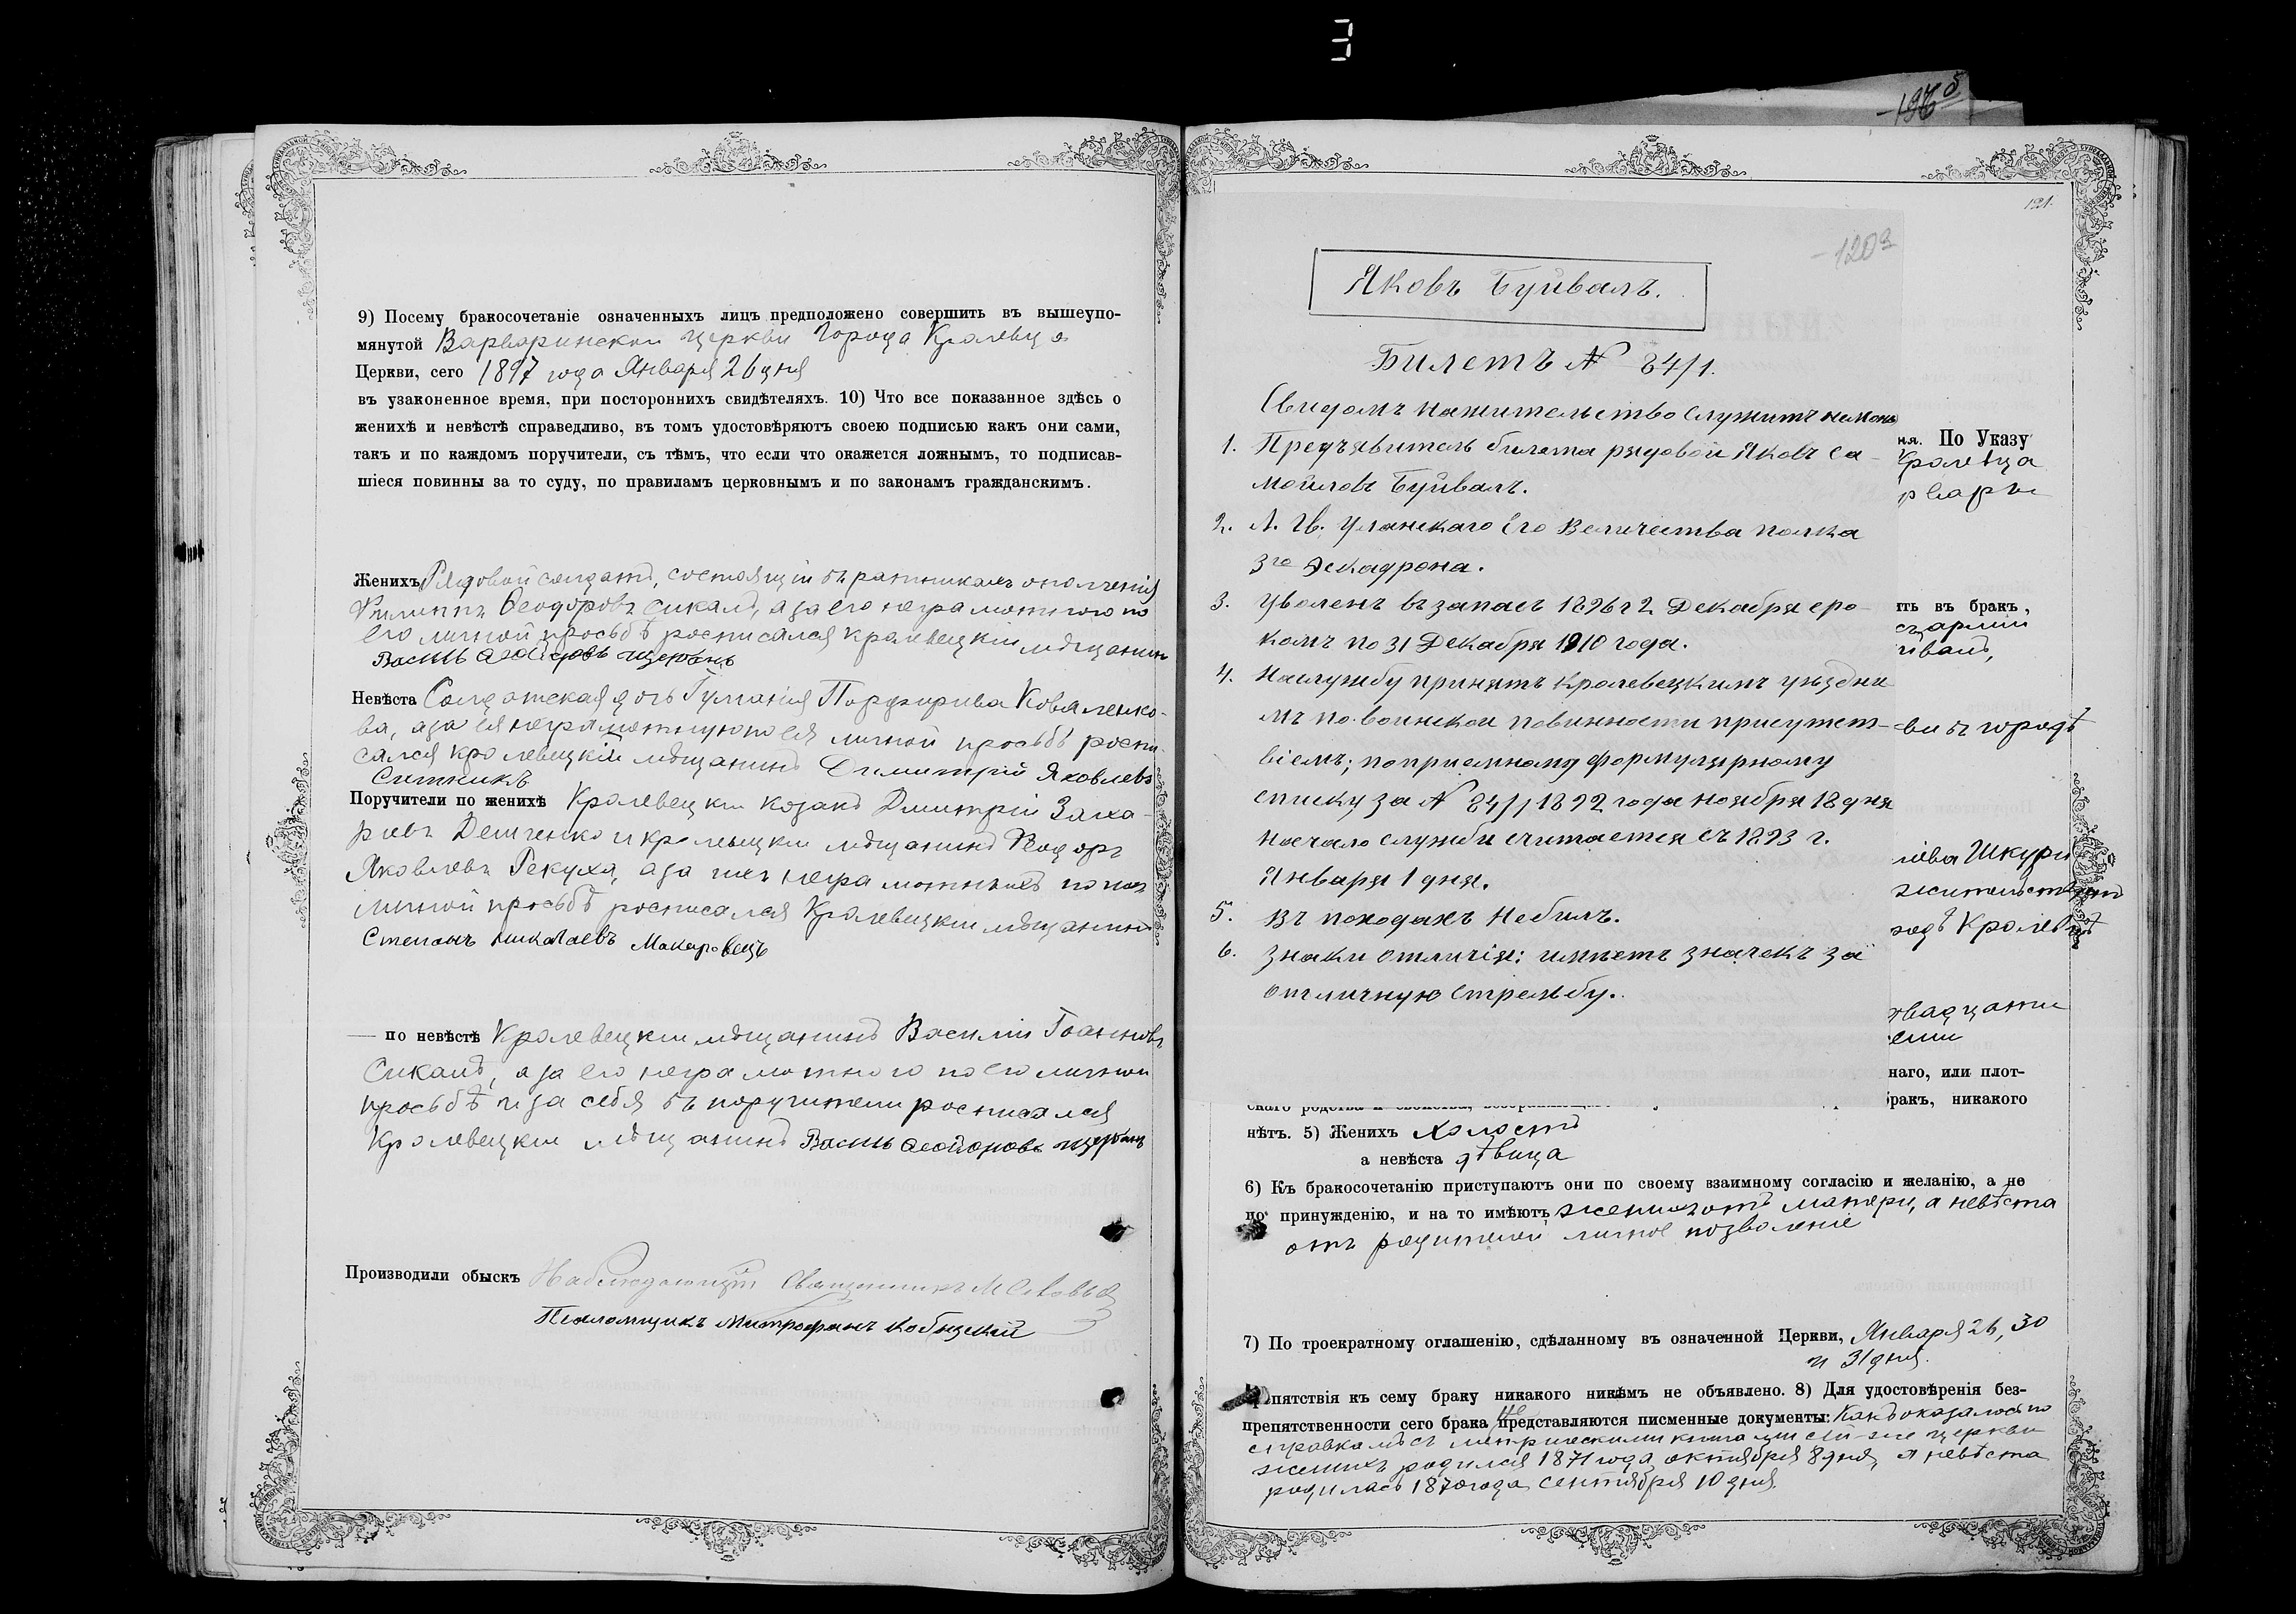 196 б
9) Посему бракосочетаніе означенныхъ лицъ предположено совершить въ вышеупо-
мянутой Варваринской церкви города Кролевца
Церкви, сего 1897 года Января 26 дня
въ узаконенное время, при постороннихъ свидѣтеляхъ. 10) Что все показанное здѣсь о
женихѣ и невѣстѣ справедливо, въ томъ удостовѣряютъ своею подписью какъ они сами,
такъ и по каждомъ поручители, съ тѣмъ, что если что окажется ложнымъ, то подписав-
шіеся повинны за то суду, по правиламъ церковнымъ и по законамъ гражданскимъ.
Женихъ Рядовой солдатъ, состоящій въ ратникахъ ополченія
Филиппъ Ѳеодоровъ Сикалъ, а за его неграмотного по
его личной просьбѣ росписался кролевецкій мѣщанинъ
Василь Ѳеодоровъ Щербакъ
Невѣста Солдатская дочь Гулианія Порфирива Коваленко-
ва, а за ея неграмотную по ея личной просьбѣ роспи-
сался кролевецкій мѣщанинъ Димитрій Яковлевъ
Ситникъ
Поручители по женихѣ Кролевецкій козакъ Дмитрій Заха-
ріевъ Демченко и кролевецкій мѣщанинъ Ѳеодоръ
Яковлевъ Рекуха, а за ихъ неграмотныхъ по ихъ
личной просьбѣ росписался Кролевецкій мѣщанинъ
Степанъ Николаевъ Макаровецъ
— по невѣстѣ Кролевецкій мѣщанинъ Василій Іоанновъ
Сикалъ, а за его неграмотного по его личной
просьбѣ и за себя въ поручители росписался
Кролевецкій мѣщанинъ Василь Ѳеодоровъ Щербакъ
Производили обыскъ Наблюдающій Священникъ М.
Псаломщикъ Митрофанъ
121.
120 а
Яковъ Буйвалъ.
Билетъ № 84/1.
Свидомъ нажительство служитъ
1. Предъявитель билета рядовой Яковъ Са-
мойловъ Буйвалъ.
2. Л. Гв. Уланскаго Его Величества полка
3го Эскадрона.
3. Уволенъ въ запасъ 1896 г 2 Декабря сро-
комъ по 31 Декабря 1910 года.
4. На службу принятъ Кролевецкимъ уѣздны
мъ по воинской повинности присутст-
віемъ; по приемному формулярному
списку за № 84/1 1892 года Ноября 18 дня
начало службы считается съ 1893 г.
Января 1 дня.
5. Въ походахъ небылъ.
6. Знаки отличія: имѣетъ значекъ за
отличную стрельбу.
ня. По Указу
Кролевца
рвары
ть въ бракъ,
съ арміи
йвалъ,
ви въ городѣ
іева Шкури
жительствуетъ
родѣ Кролевцѣ
двадцати
еми
наго, или плот-
бракъ, никакого
нѣтъ. 5) Женихъ холостъ
а невѣста дѣвица
6) Къ бракосочетанію приступаютъ они по своему взаимному согласію и желанію, а не
по принужденію, и на то имѣютъ женихъ отъ матери, а невѣста
отъ родителей личное позволеніе
7) По троекратному оглашенію, сдѣланному въ означенной Церкви, Января 26, 30
и 31 дня.
препятствія къ сему браку никакого никѣмъ не объявлено. 8) Для удостовѣренія без-
препятственности сего брака не представляются писменные документы: Какъ оказалось по
справкамъ съ метрическими книгами сей-же церкви
женихъ родился 1871 года октября 8 дня, а невѣста
родилась 1870 года сентября 10 дня.